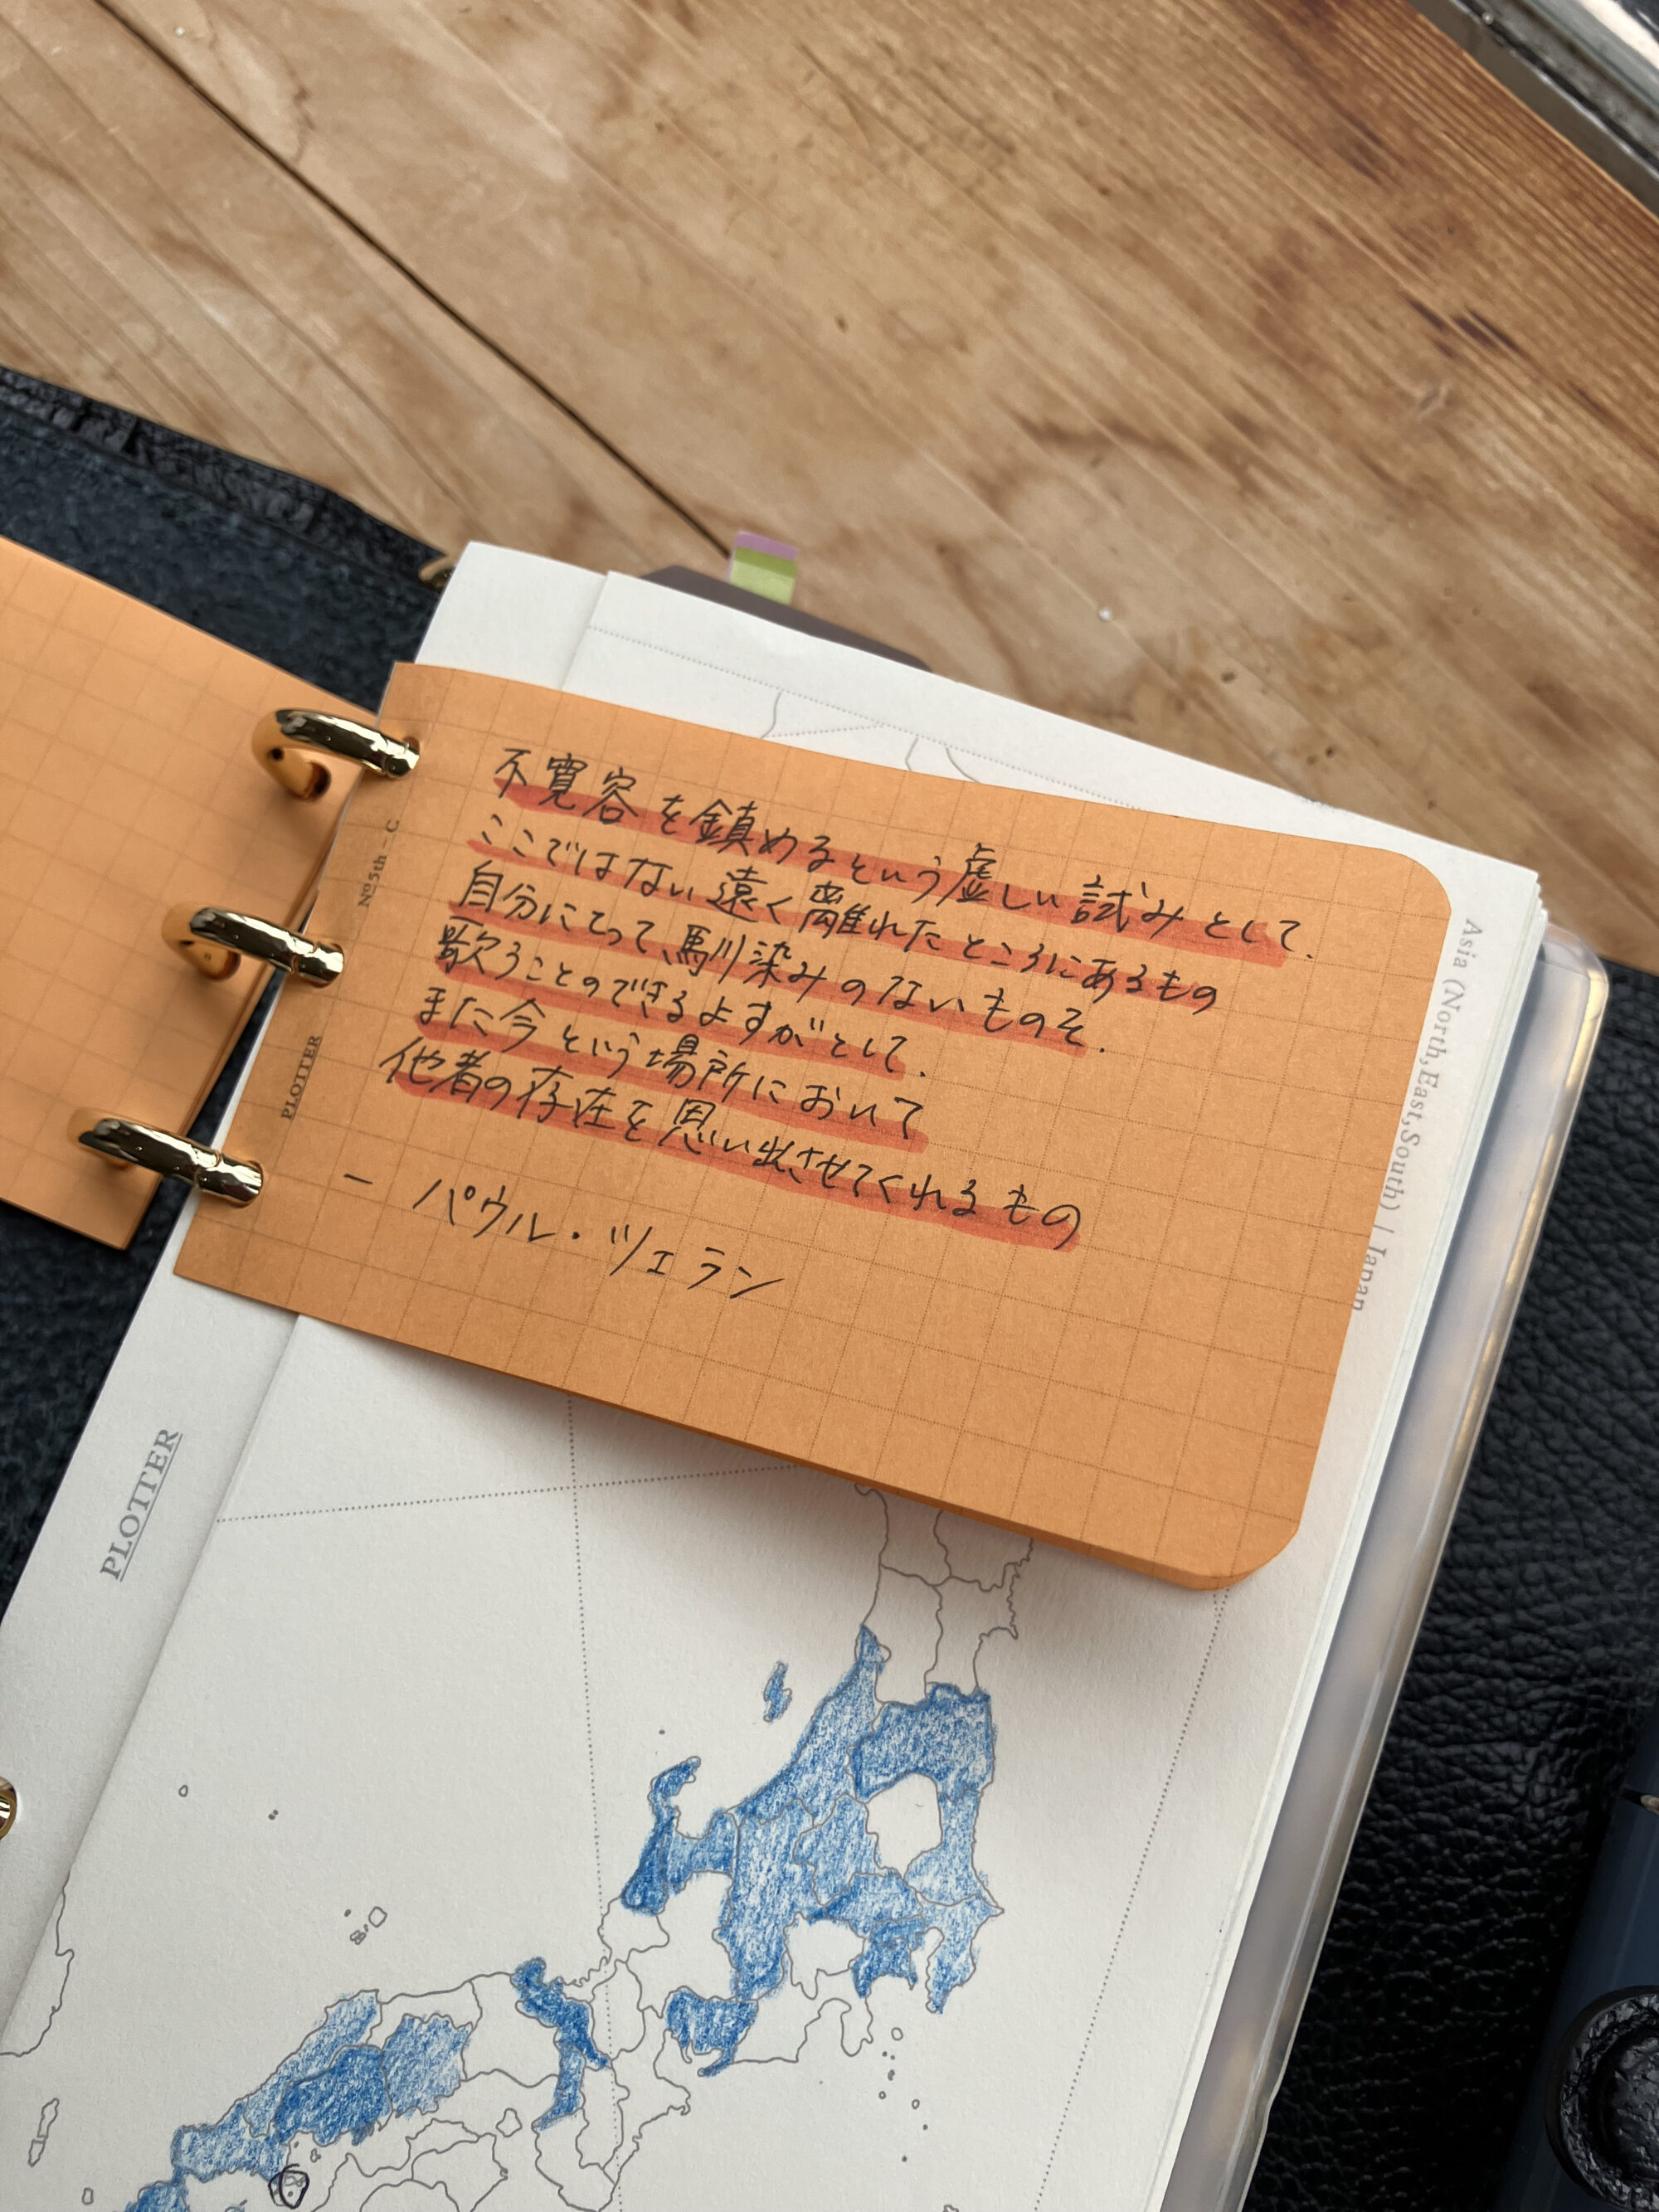 不寛容を鎮めるという虚しい試みとして.
ここではない遠く離れたところにあるもの
自分にとって、馴染みのないものを.
歌うことのできるよすがとして.
また今という場所において
他者の存在を思い出させてくれるもの
― パウル・ツェラン
Nº5th - C
PLOTTER
Asia (North,East,South) | Japan
PLOTTER